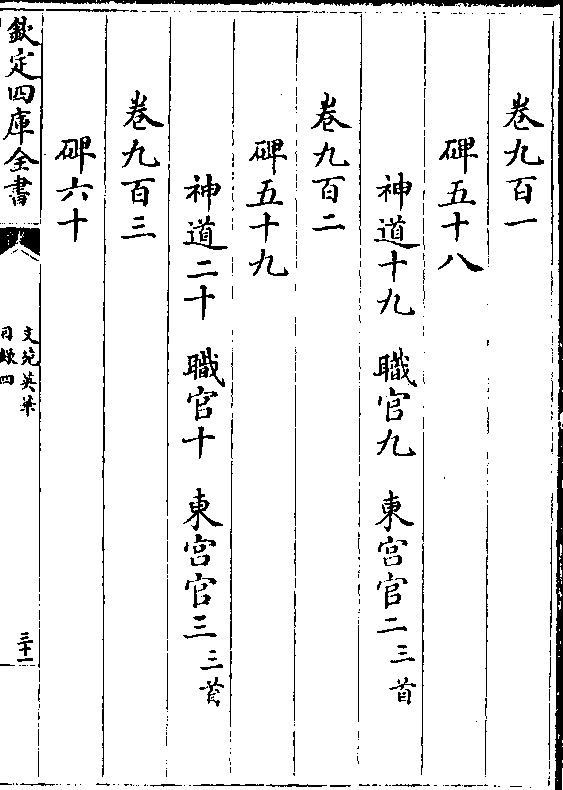 卷九百一
碑五十八
神道十九 職官九 東宮官二 三首
卷九百二
碑五十九
神道二十 職官十 東宮官三 三首
卷九百三
碑六十
欽定四庫全書
文苑英華
目錄四
三十一